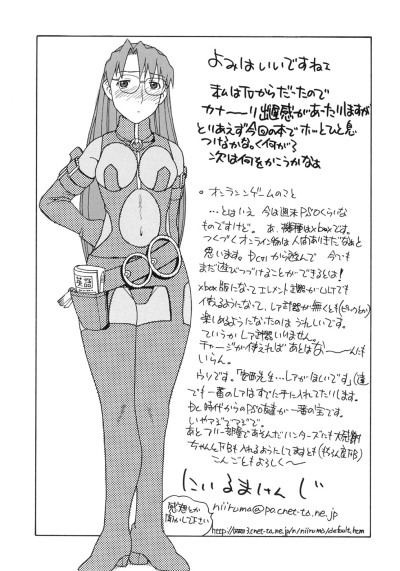 よみはいいですねえ
私はTVからだったので
カナーーリ出遅感があったりしますが
とりあえず今回の本でホッとひと息
つなかなっく何がる
次は何をかこうかなぁ
。オンラインゲームのこと
…とはいえ 今は週末PSOくらいな
ものですけど。 あ、機種はxboxです。
つくづくオンライン物は人はありきだなぁと
思います。Dcから遊んで 今でも
まだ遊びつづけることができるとは！
xbox版になってエレメント武器がULTでも
使えるようになって、レア武器が無くとも
楽しめるようになったのは うれしいです。
ていうかレア武器いりません。
チャージが使えれば あとはなーーんも
いらん。
ウソです。「先生…レアがほしいです」
でも一番のレアはすでに手に入れてたりします。
Dc時代からのPSO友達が一番の宝です。
いやマジでマジで。
あとフリー部屋であそんだハンターズにも大感謝
こんごともよろしく〜
にいるまけんじ
感想とか
聞かして下さい
niiruma@pa.cnet-ta.ne.jp